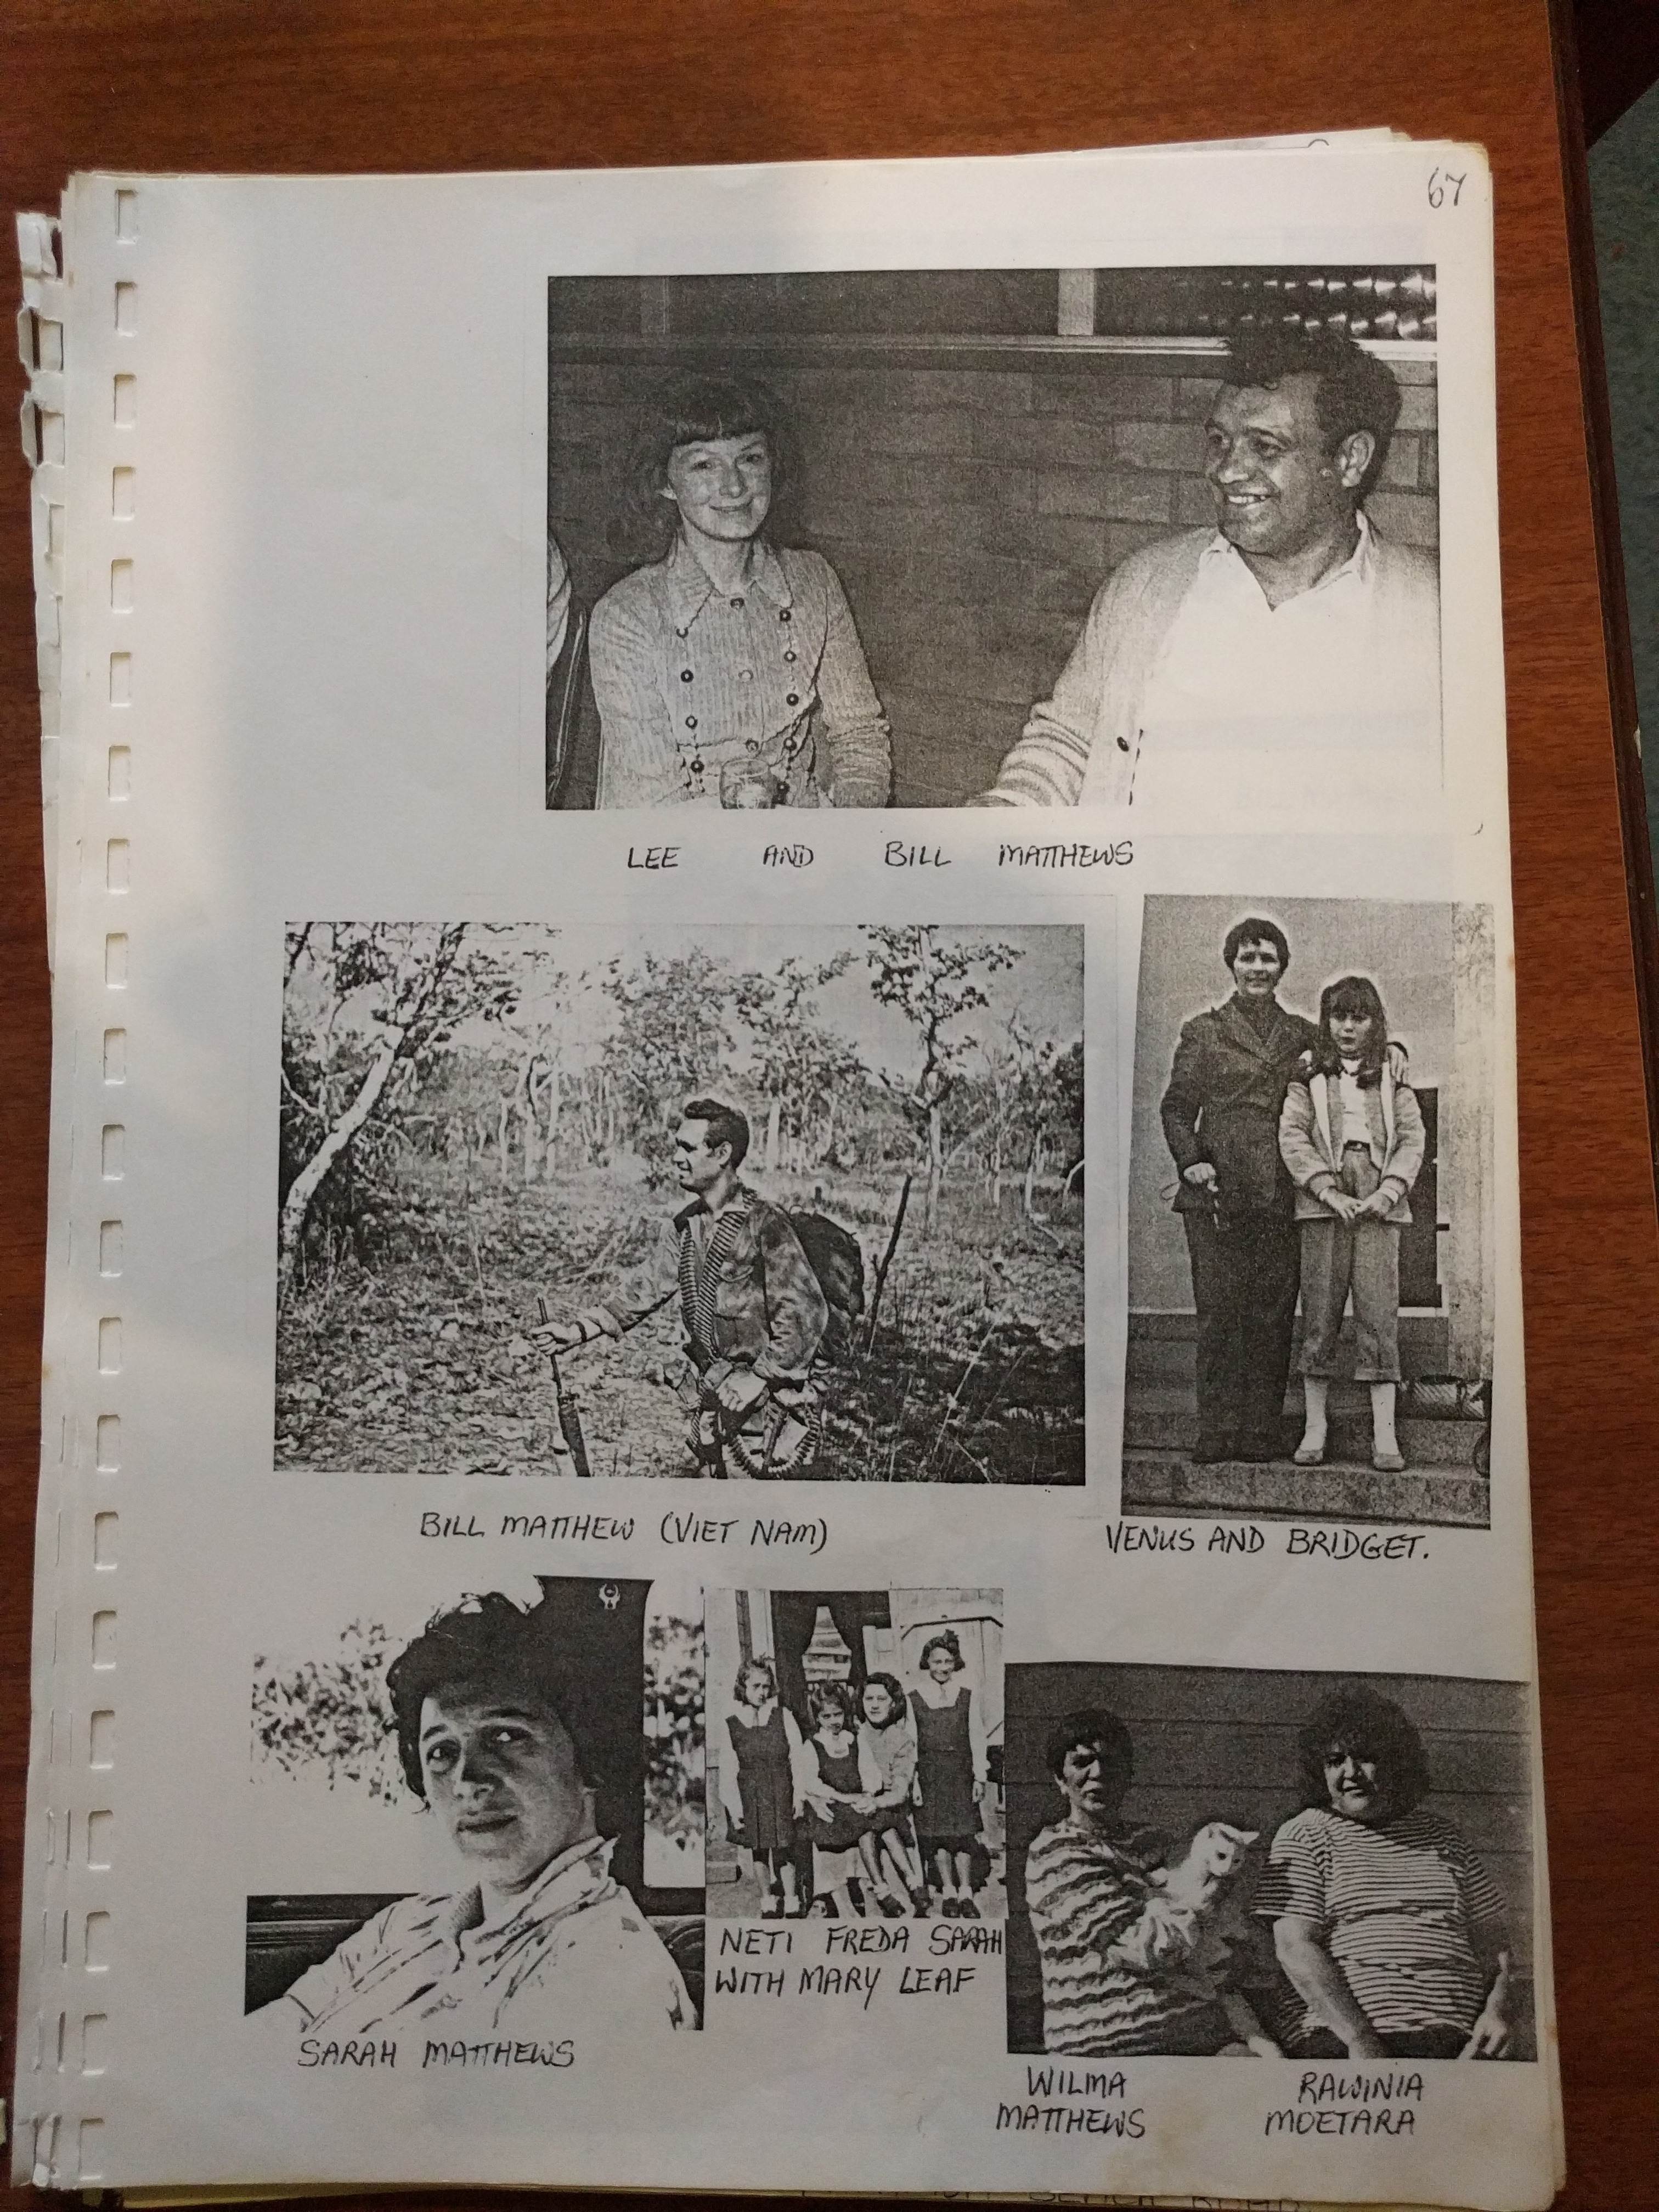 67
LEE AND BILL MATTHEWS
BILL MATTHEW (VIET NAM)
VENUS AND BRIDGET.
SARAH MATTHEWS
NETI FREDA SARAH
WITH MARY LEAF
WILMA
MATTHEWS
RAWINIA
MOETARA